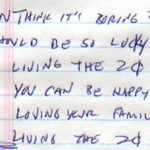 THINK IT'S BORING
SHOULD BE SO LUCKY
LIVING THE 2¢
YOU CAN BE HAPPY
LOVING YOUR FAMIL
LIVING THE 2¢